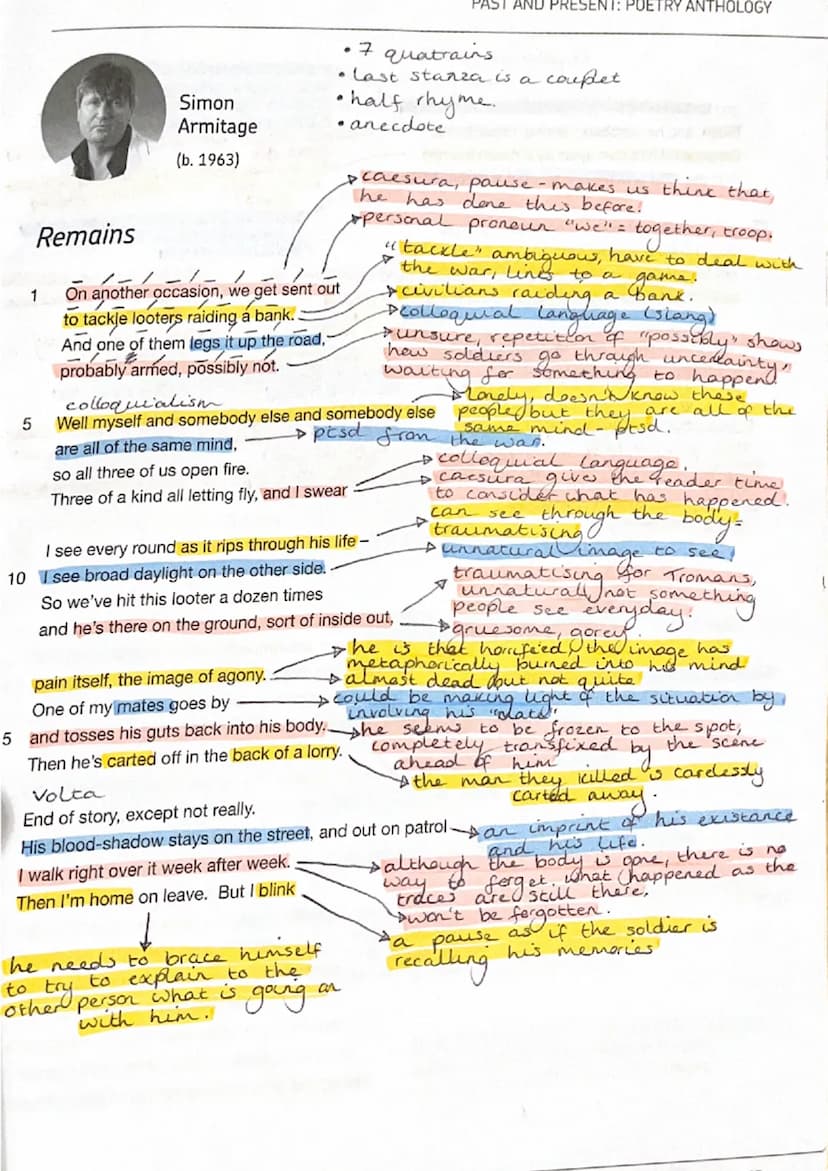 PAST AND PRESENT: POETRY ANTHOLOGY
• 7 quatrains
• last stanza is a couplet
• half rhyme.
• anecdote
Simon
Armitage
(b. 1963)
caesura, pause - makes us think that
he has done this before.
personal pronoun "we" = together, troop.
Remains
"tackle" ambiguous, have to deal with
the war, links to a game.
1 On another occasion, we get sent out
civilians raiding a bank.
to tackle looters raiding a bank.
colloquial language (slang)
And one of them legs it up the road,
unsure, repetition of "possibly" shows
how soldiers go through uncertainty,
probably armed, possibly not.
waiting for something to happend
colloquialism
lonely, doesn't know these
5 Well myself and somebody else and somebody else
people, but they are all of the
same mind - ptsd.
are all of the same mind,
ptsd from the war.
so all three of us open fire.
colloquial language.
Three of a kind all letting fly, and I swear
caesura gives the reader time
to consider what has happened.
can see through the body -
traumatising
I see every round as it rips through his life –
unnatural image to see
10 I see broad daylight on the other side.
traumatising for
unnaturally not something
people see everyday.
So we've hit this looter a dozen times
and he's there on the ground, sort of inside out,
gruesome, gorey
he is that horrified, the image has
metaphorically burned into his mind
pain itself, the image of agony.
almost dead but not quite
One of my mates goes by
could be making light of the situation by
involving his "mate"
5 and tosses his guts back into his body.
he seems to be frozen to the spot,
completely transfixed by the scene
ahead of him
Then he's carted off in the back of a lorry.
the man they killed is carelessly
carted away.
Volta
End of story, except not really.
His blood-shadow stays on the street, and out on patrol
an imprint of his existance
and his life.
I walk right over it week after week.
although the body is gone, there is no
way to forget what happened as the
traces are still there.
Then I'm home on leave. But I blink
won't be forgotten.
a pause as if the soldier is
recalling his memories
he needs to brace himself
to try to explain to the
other person what is going on
with him.